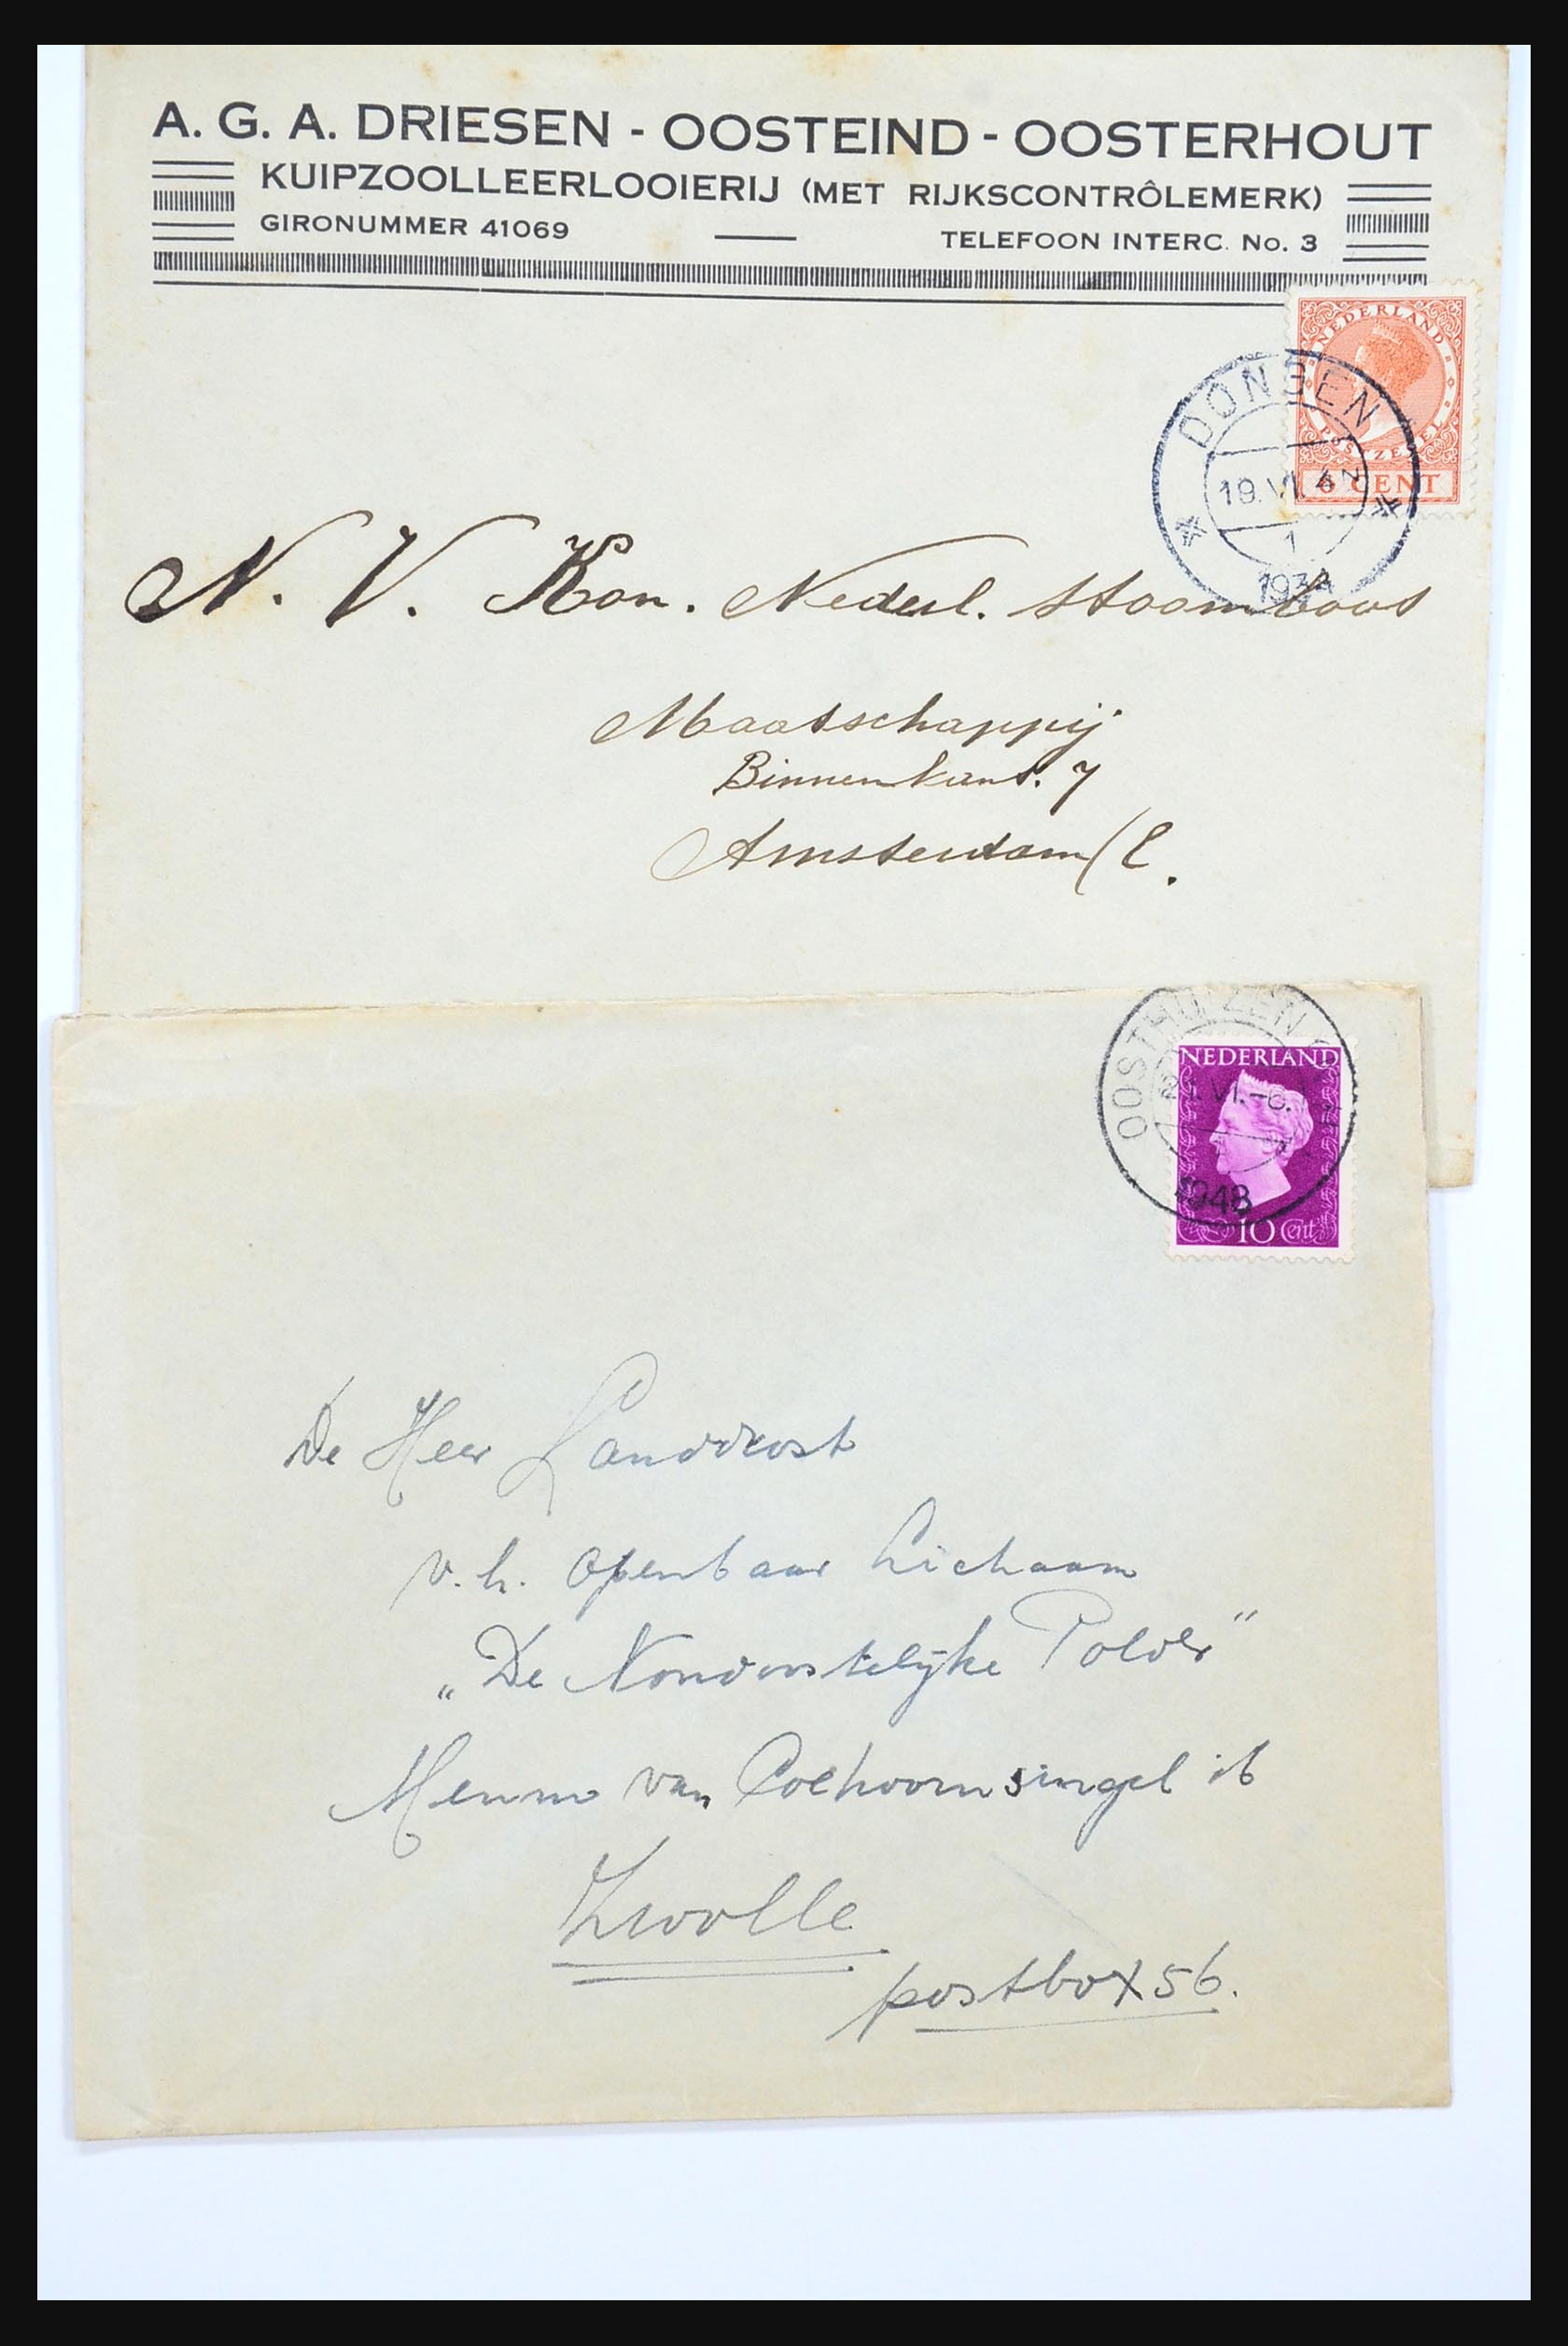 A. G. A. DRIESEN - OOSTEIND - OOSTERHOUT
KUIPZOOLLEERLOOIERIJ (MET RIJKSCONTRÔLEMERK)
GIRONUMMER 41069
TELEFOON INTERC. No. 3
NEDERLAND
POSTZEGEL
6 CENT
DONGEN
19.VI.
1
1934
N. V. Kon. Nederl. Stoomboot
Maatschappij
Binnenkant. 7
Amsterdam/C.
OOSTHUIZEN
NEDERLAND
VI.
1948
10 Cent
De Heer Landdrost
v.h. Openbaar Lichaam
„De Noordoostelijke Polder"
Menno van Coehoornsingel 16
Zwolle
postbox 56.